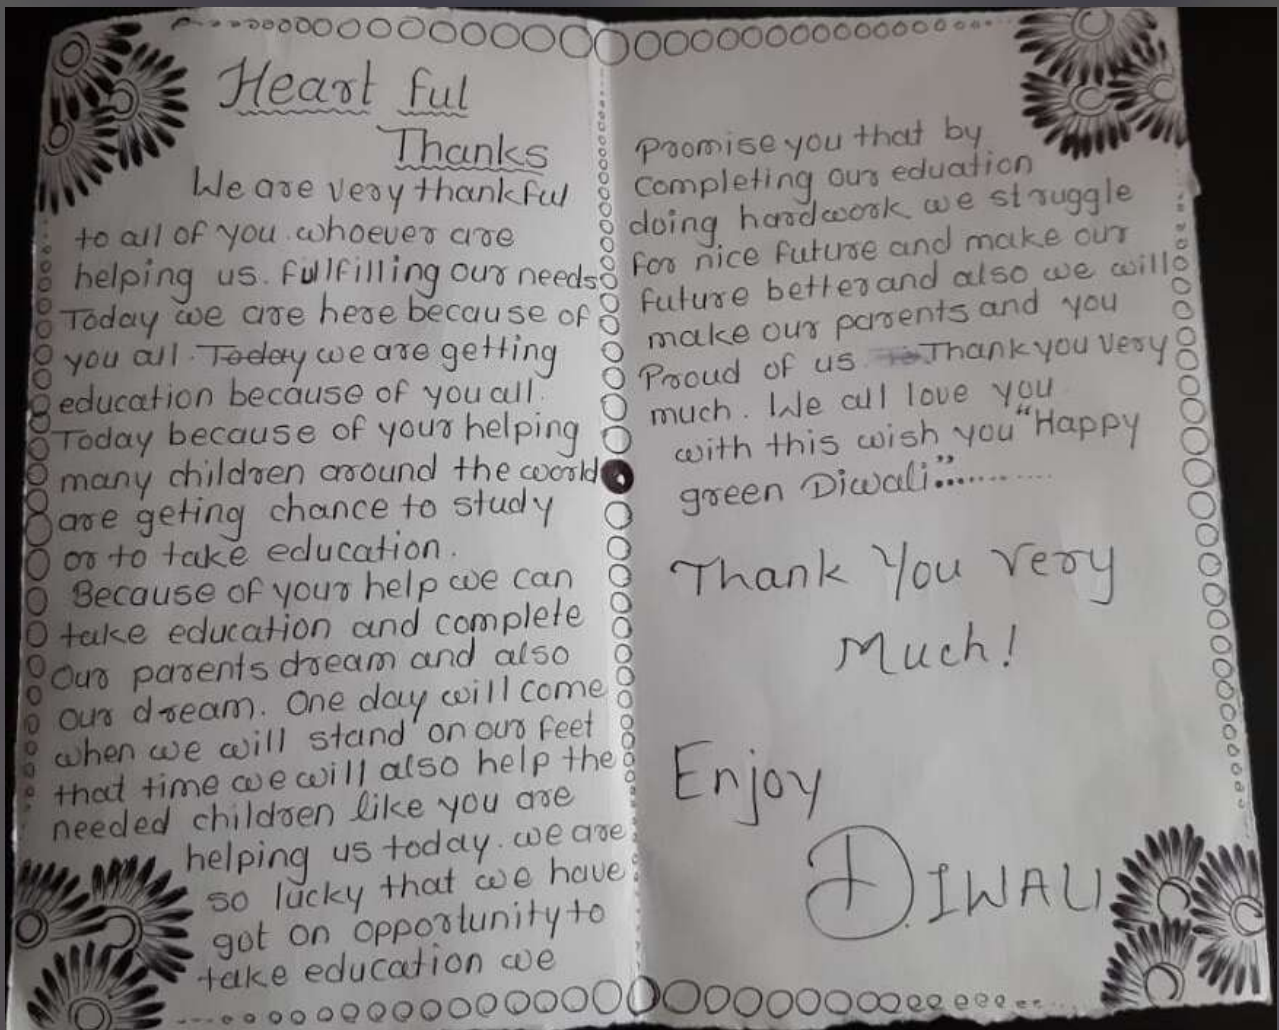 Heart ful
Thanks
We are very thankful
to all of you whoever are
helping us. fullfilling our needs
Today we are here because of
you all. Today we are getting
education because of you all.
Today because of your helping
many children around the world
are geting chance to study
or to take education.
Because of your help we can
take education and complete
Our parents dream and also
our dream. One day will come
when we will stand on our feet
that time we will also help the
needed children like you are
helping us today. we are
so lucky that we have
got on opportunity to
take education we
Promise you that by
Completing our eduation
doing hardwork we struggle
for nice future and make our
future better and also we will
make our parents and you
Proud of us. Thank you very
much. We all love you
with this wish you "Happy
green Diwali"............
Thank You Very
Much!
Enjoy
DIWALI